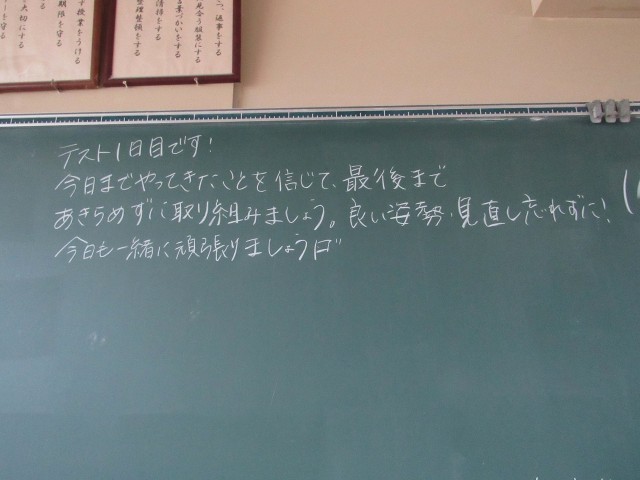 う授業をうける
期限を守る
大切にする
を守る
つ、返事をする
に見合う服装にする
言葉づかいをする
清掃をする
整理整頓をする
テスト1日目です!
今日までやってきたことを信じて、最後まで
あきらめずに取り組みましょう。良い姿勢・見直し忘れずに!
今日も一緒に頑張りましょう